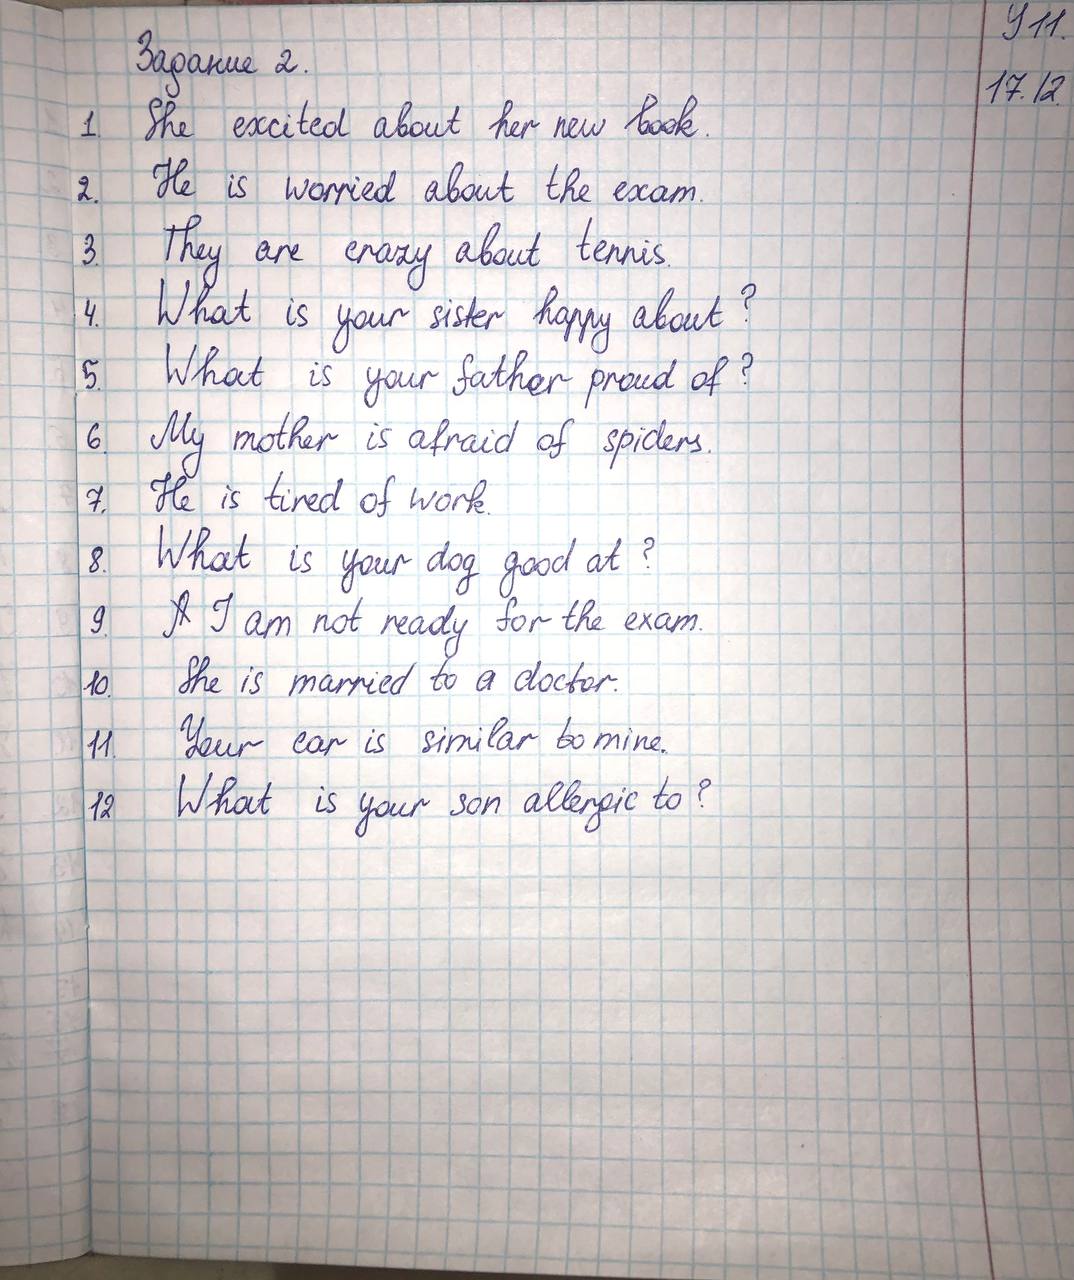 У 11.
17.12
Задание 2.
1. She excited about her new book.
2. He is worried about the exam.
3. They are crazy about tennis.
4. What is your sister happy about?
5. What is your father proud of?
6. My mother is afraid of spiders.
7. He is tired of work.
8. What is your dog good at?
9. I am not ready for the exam.
10. She is married to a doctor.
11. Your car is similar to mine.
12 What is your son allergic to?